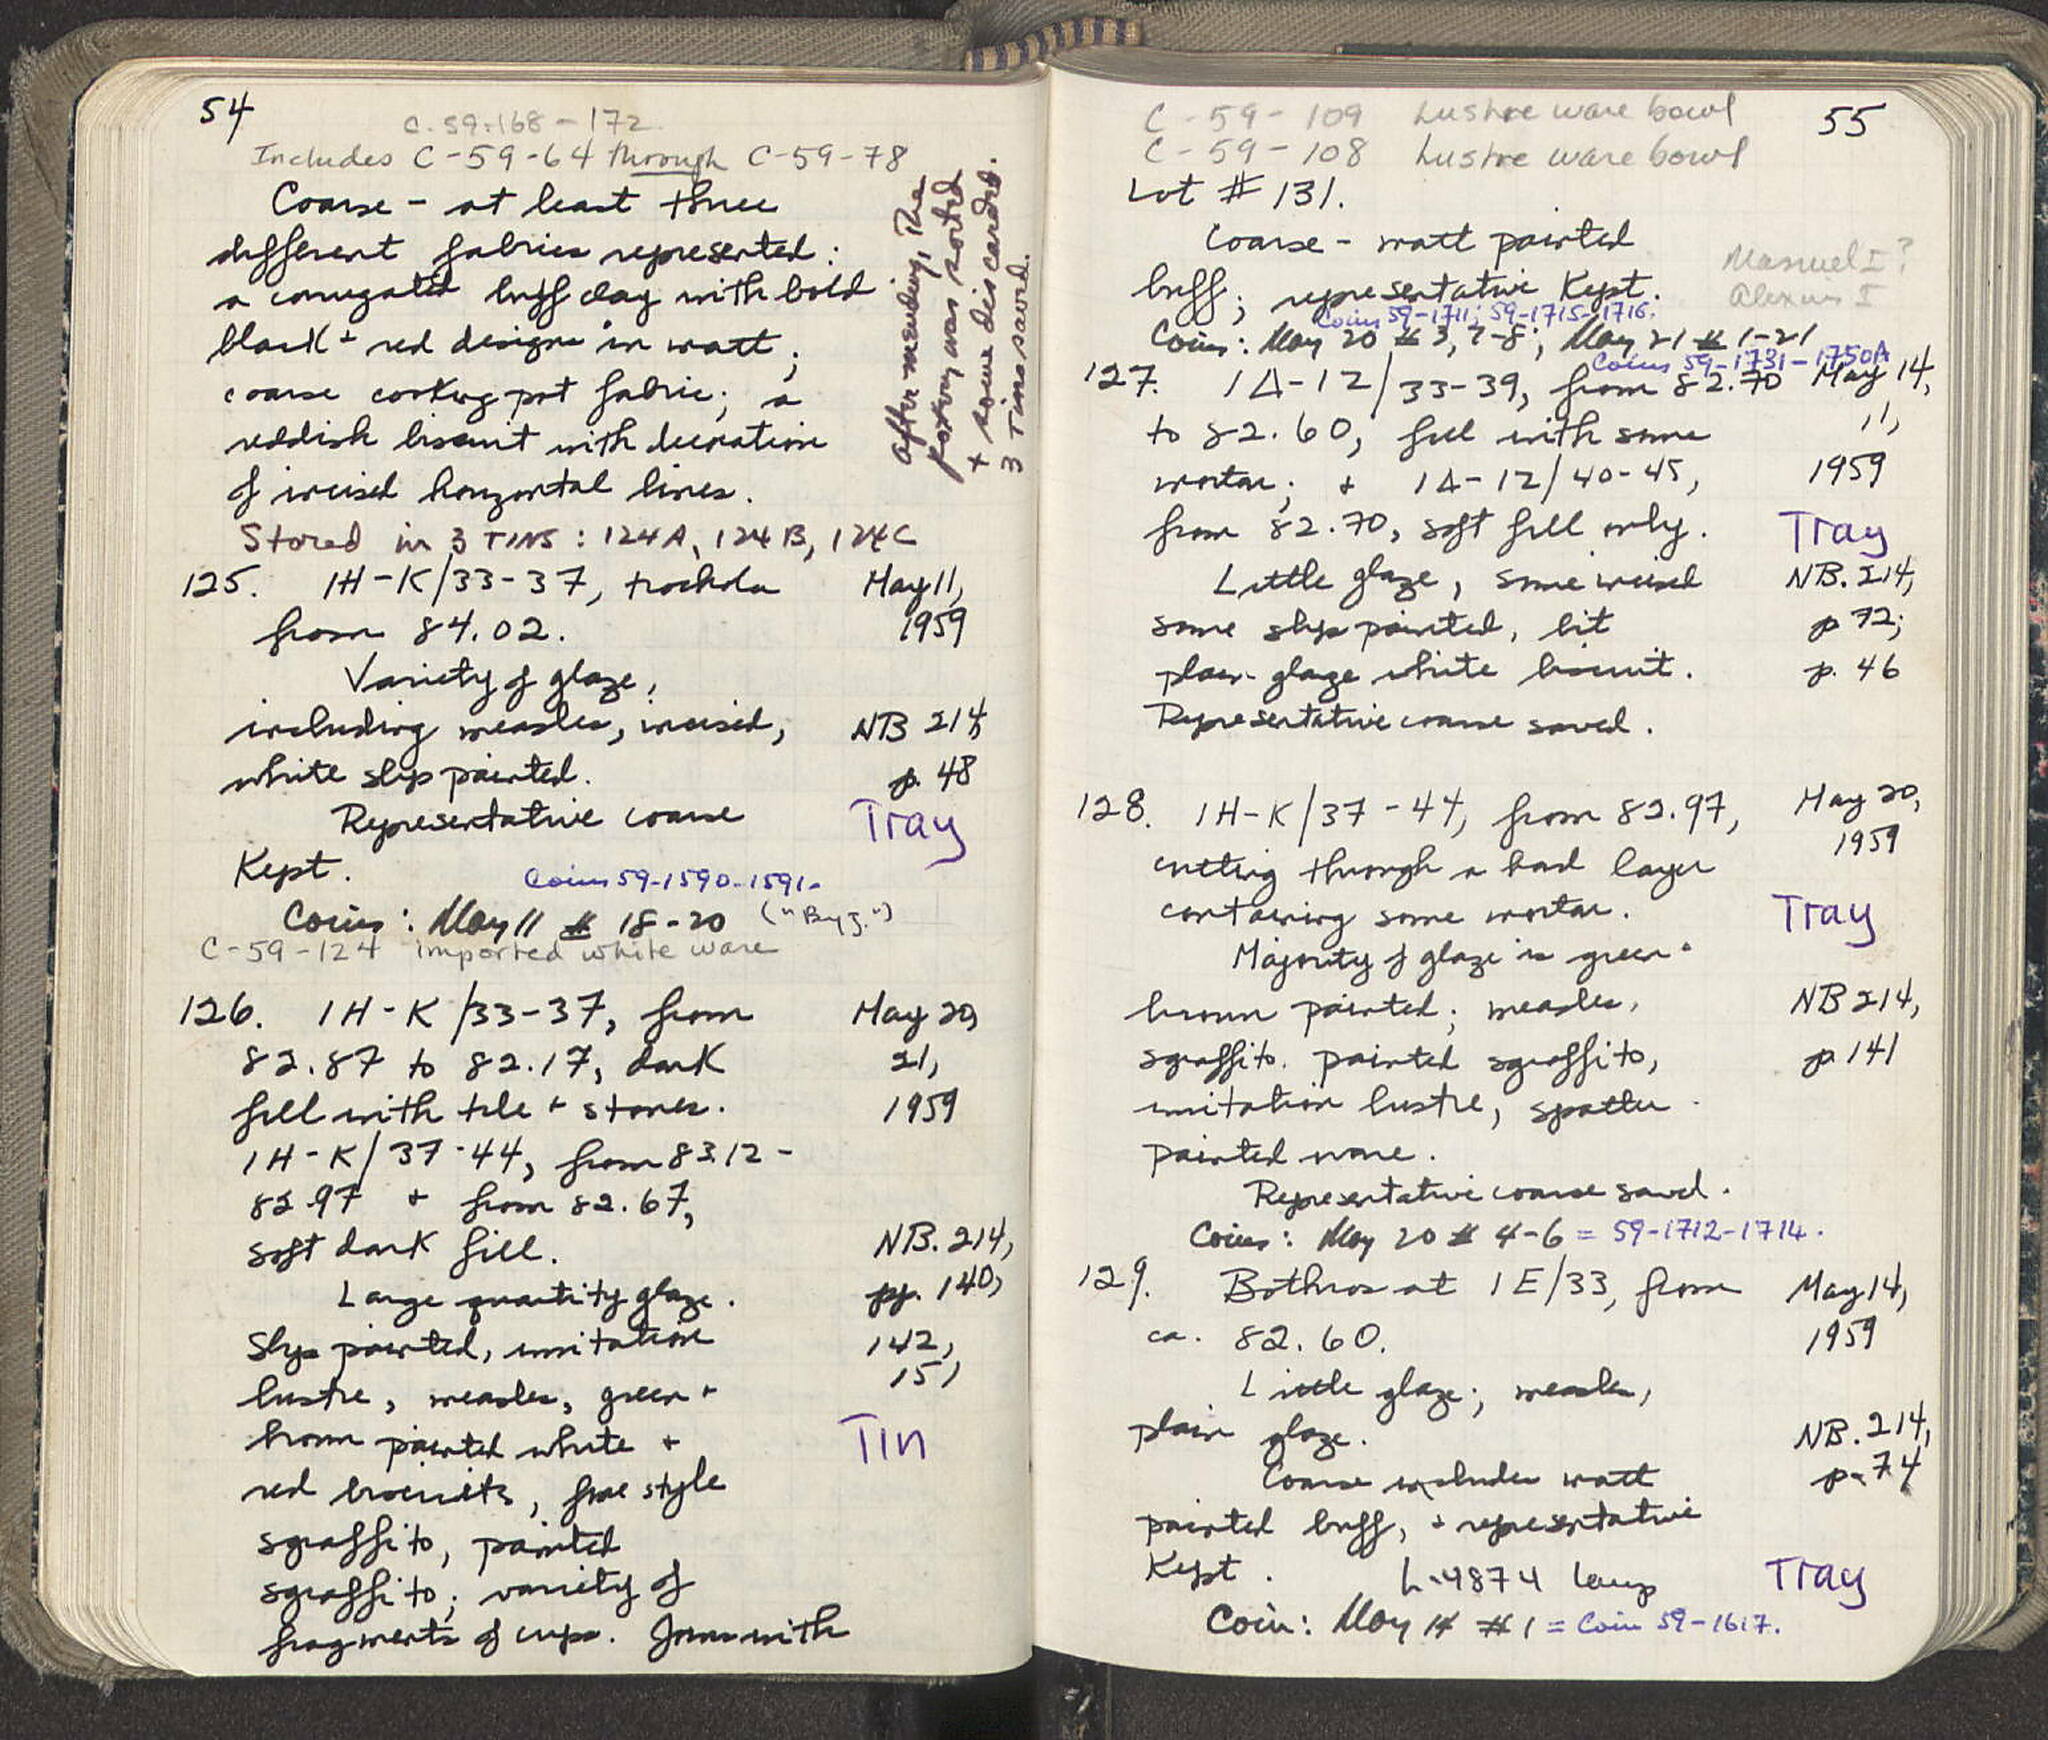 54
C-59-168-172
Includes C-59-64 through C-59-78
Coarse - at least three
different fabrics represented:
a corrugated buff clay with bold
black + red designs in matt;
coarse cooking pot fabric; a
reddish biscuit with decoration
of incised horizontal lines.
After mending, The
pottery was sorted
+ some discarded.
3 Tins saved.
Stored in 3 TINS: 124A, 124B, 124C
125. 1H-K/33-37, trochola May 11,
from 84.02. 1959
Variety of glaze,
including measles, incised, NB 214,
white slip painted. p. 48
Representative coarse Tray
Kept.
Coins 59-1590-1591-
Coins: May 11 # 18-20 ("Byz.")
C-59-124 imported white ware
126. 1H-K/33-37, from May 20,
82.87 to 82.17, dark 21,
fill with tile + stones. 1959
1H-K/37-44, from 83.12 -
82.97 + from 82.67,
soft dark fill. NB. 214,
Large quantity glaze. pp. 140,
Slip painted, imitation 142,
lustre, measles, green + 151
brown painted white + Tin
red biscuits, fine style
sgraffito, painted
sgraffito; variety of
fragments of cups. Joins with
55
C-59-109 Lustre ware bowl
C-59-108 Lustre ware bowl
Lot # 131.
Coarse - matt painted
buff; representative Kept.
Manuel I?
Alexius I
Coins 59-1711; 59-1715-1716.
Coins: May 20 # 3, 7-8; May 21 # 1-21
Coins 59-1731-1750A
127. 1Δ-12/33-39, from 82.70 May 14,
to 82.60, fill with some 11,
mortar; + 1Δ-12/40-45, 1959
from 82.70, soft fill only. Tray
Little glaze, some incised NB. 214,
some slip painted, bit p 72;
plain glaze white biscuit. p. 46
Representative coarse saved.
128. 1H-K/37-44, from 82.97, May 20,
cutting through a hard layer 1959
containing some mortar. Tray
Majority of glaze is green +
brown painted; measles, NB 214,
sgraffito, painted sgraffito, p. 141
imitation lustre, spatter
painted ware.
Representative coarse saved.
Coins: May 20 # 4-6 = 59-1712-1714.
129. Bothros at 1E/33, from May 14,
ca. 82.60. 1959
Little glaze; measles,
plain glaze. NB. 214,
Coarse includes matt p. 74
painted buff, + representative
Kept. L-4874 lamp Tray
Coin: May 14 # 1 = Coin 59-1617.